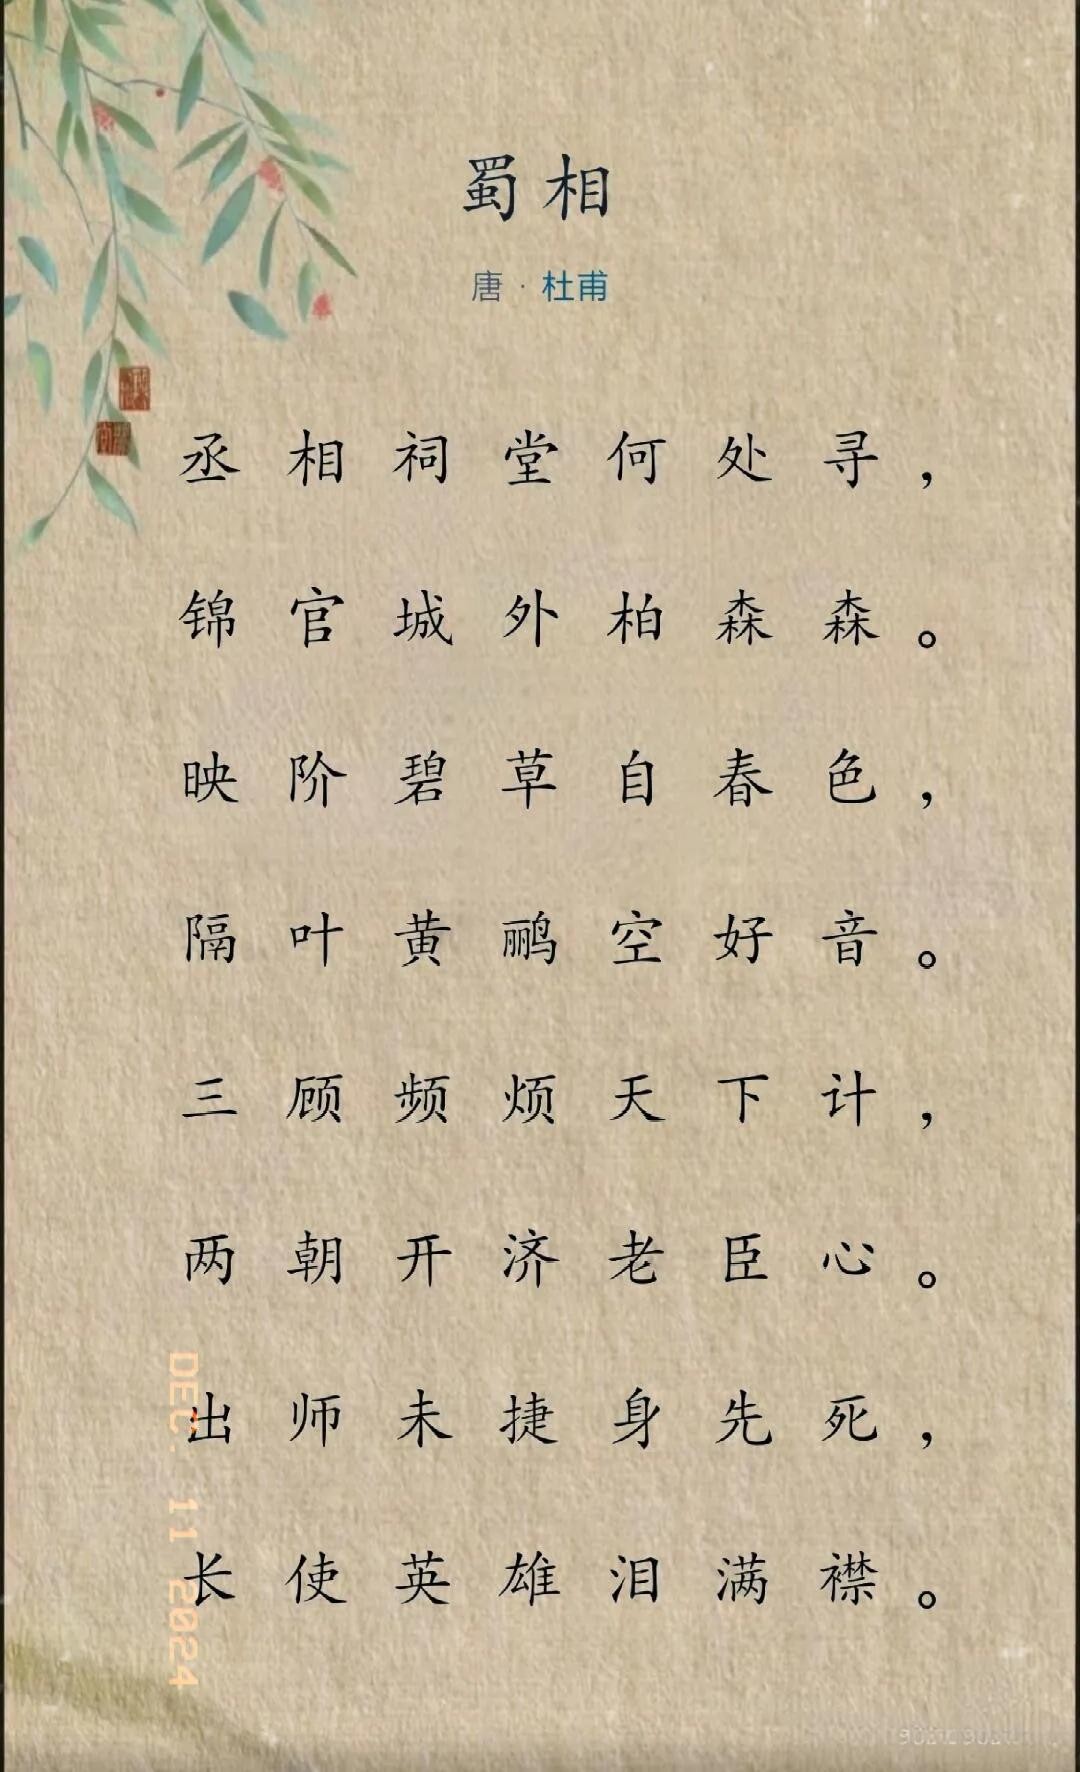 蜀相
唐·杜甫
丞相祠堂何处寻，
锦官城外柏森森。
映阶碧草自春色，
隔叶黄鹂空好音。
三顾频烦天下计，
两朝开济老臣心。
出师未捷身先死，
长使英雄泪满襟。
DEC. 11 2024